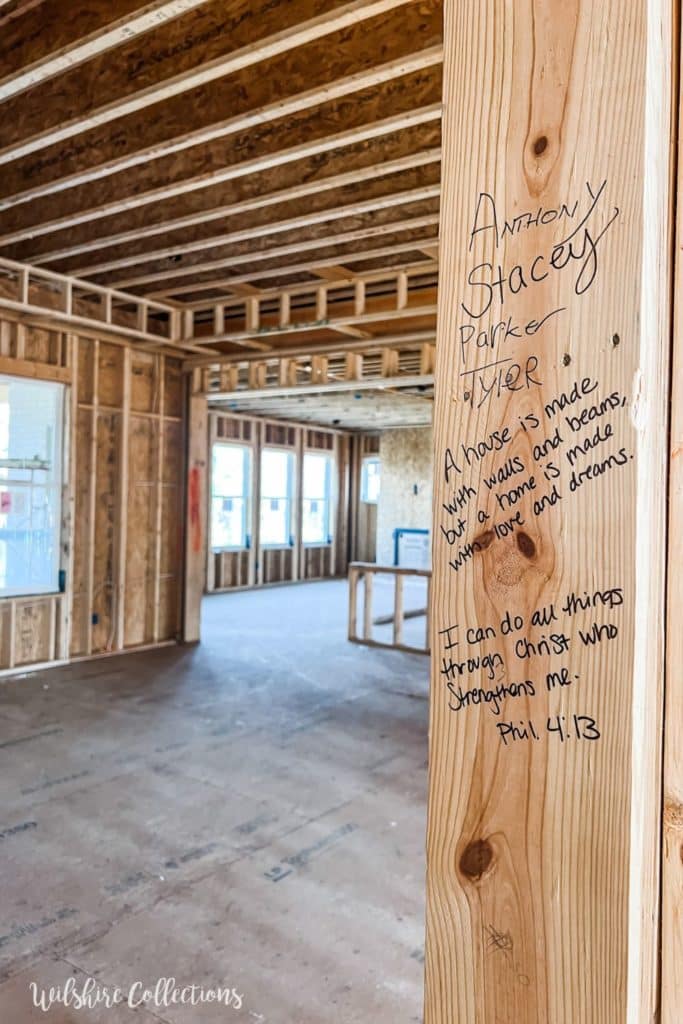 ANTHONY
Stacey
Parker
TYLER
A house is made
with walls and beams,
but a home is made
with love and dreams.
I can do all things
through Christ who
strengthens me.
Phil. 4:13
Wilshire Collections